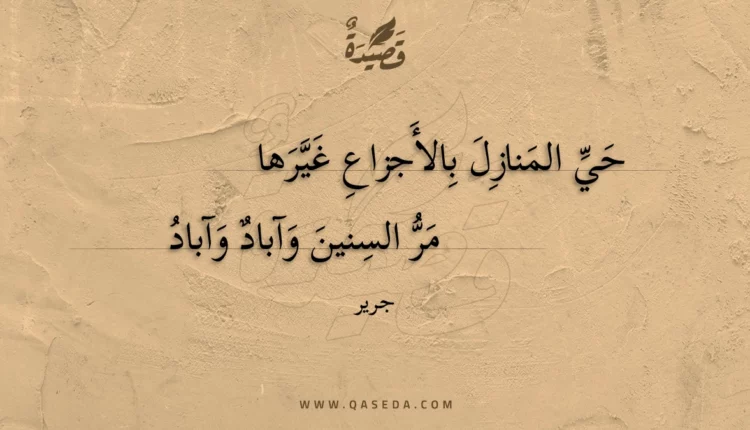 قَصِيْدَةٌ
حَيِّ المَنازِلَ بِالأَجزاعِ غَيَّرَها
مَرُّ السِنينَ وَآبادٌ وَآبادُ
جرير
WWW.QASEDA.COM